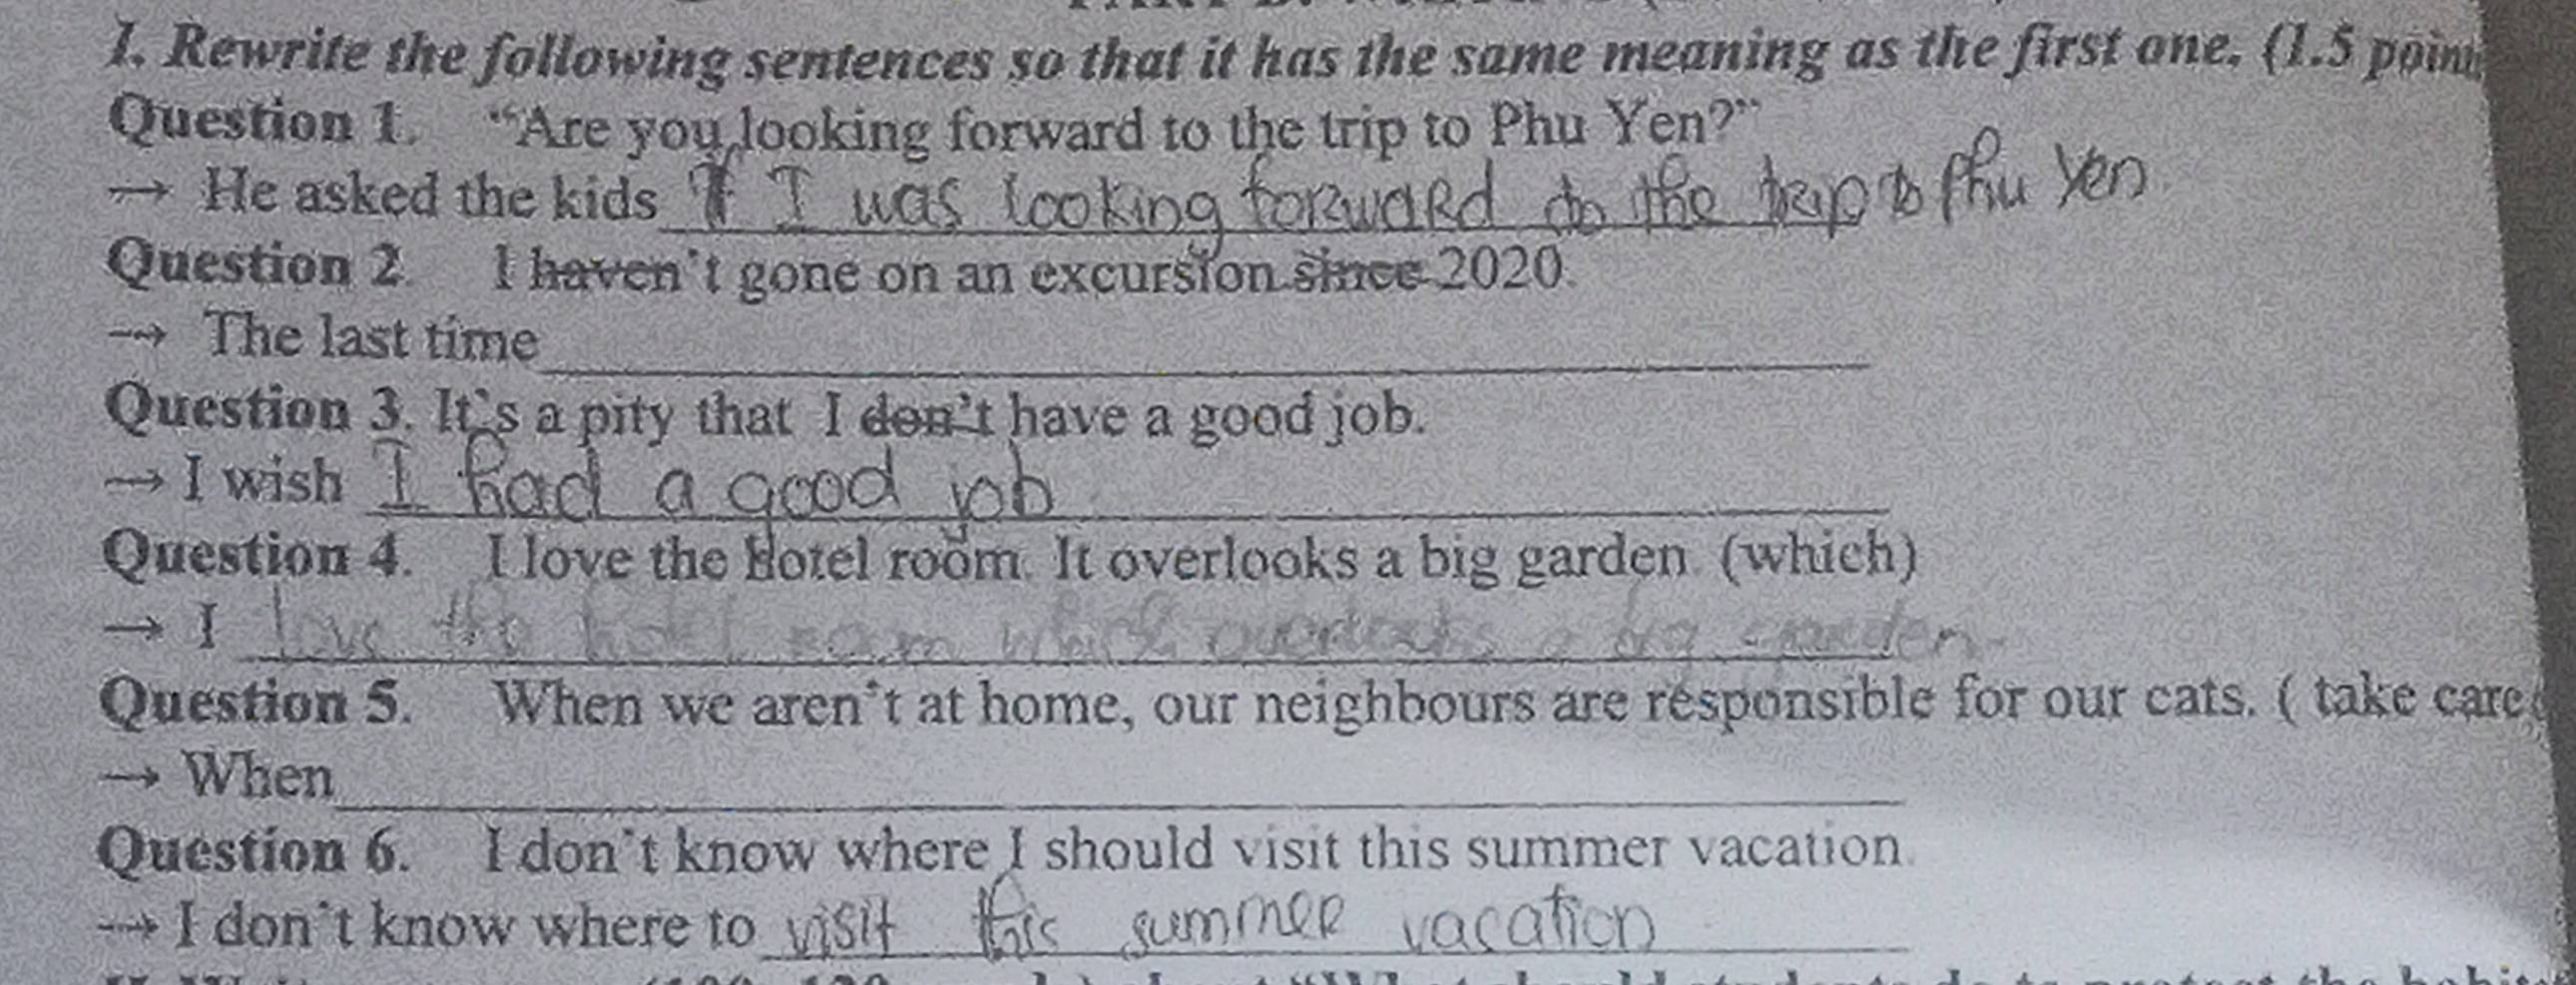 I. Rewrite the following sentences so that it has the same meaning as the first one. (1.5 point
Question 1. "Are you looking forward to the trip to Phu Yen?"
→ He asked the kids If I was looking forward to the trip to Phu Yen
Question 2. I haven't gone on an excursion since 2020.
→ The last time
Question 3. It's a pity that I don't have a good job.
→ I wish I had a good job
Question 4. I love the hotel room. It overlooks a big garden. (which)
→ I love the hotel room which overlooks a big garden.
Question 5. When we aren't at home, our neighbours are responsible for our cats. ( take care
→ When
Question 6. I don't know where I should visit this summer vacation.
→ I don't know where to visit this summer vacation